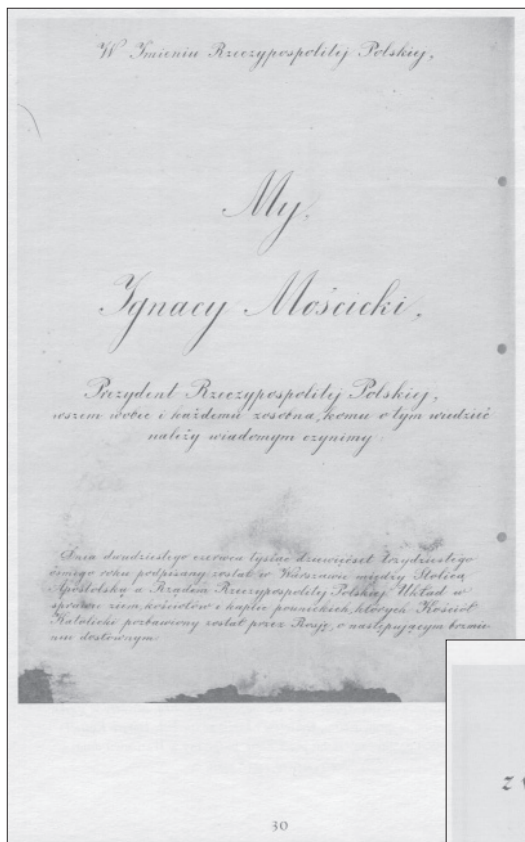 W Imieniu Rzeczypospolitej Polskiej,
My,
Ignacy Mościcki,
Prezydent Rzeczypospolitej Polskiej,
wszem wobec i każdemu zosobna, komu o tym wiedzieć
należy wiadomym czynimy:
Dnia dwudziestego czerwca tysiąc dziewięćset trzydziestego
ósmego roku podpisany został w Warszawie między Stolicą
Apostolską a Rządem Rzeczypospolitej Polskiej Układ w
sprawie ziem, kościołów i kaplic pounickich, których Kościół
Katolicki pozbawiony został przez Rosję, o następującym brzmie-
niu dosłownym
30
z